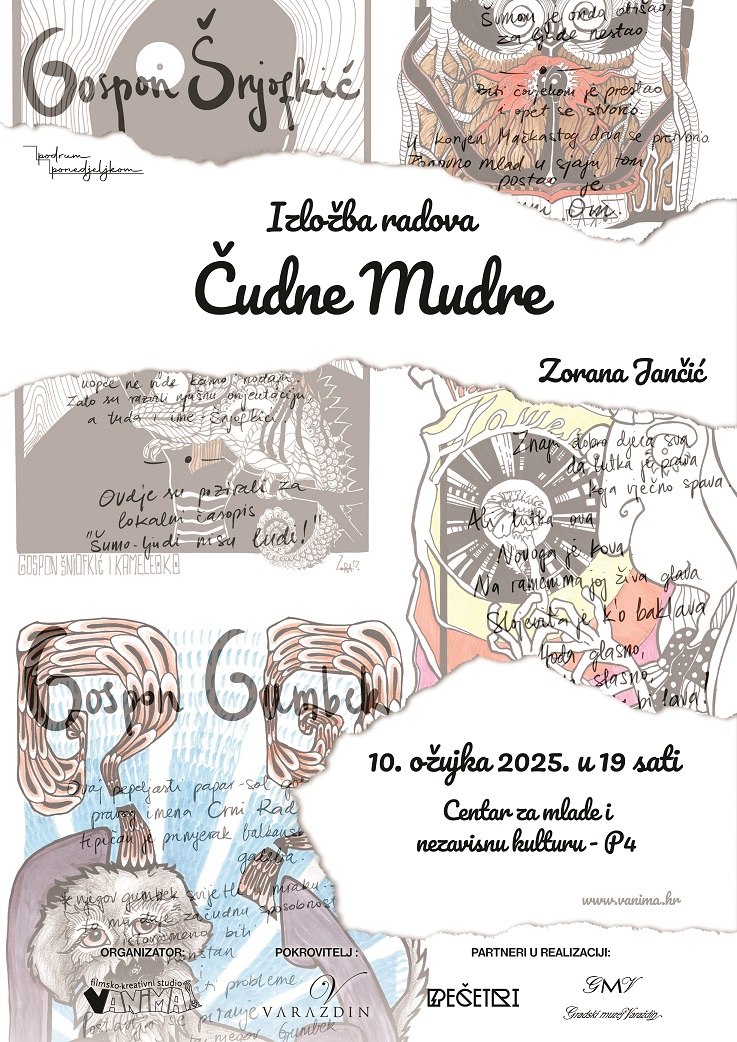 Gospon Šnjofkić
Šumom je onda otišao,
za ljude nestao.
biti čovjekom je prestao
i opet se stvorio.
U konjen Mačkastog drva se pretvorio.
Ponovno mlad u sjaju tom
postao je
Om.
podrum
ponedjeljkom
Izložba radova
Čudne Mudre
Zorana Jančić
uopće ne vide kamo hodaju.
Zato su razvili njušnu orijentaciju
a tuda i ime: Šnjofkići.
Ovdje su pozirali za
lokalni časopis
"Šumo-ljudi nisu ludi!"
GOSPON ŠNJOFKIĆ I KAMELEOKO
Znaju dobro djeca sva
da lutka je prava
koja vječno spava.
Ah, lutka ova
Novoga je kova
Na ramenima joj živa glava
Slojevita je k'o baklava
Hoda glasno,
slasno,
bi lava!
Gospon Gumbek
Ovaj pepeljasti papar-sol
pravog imena Crni
tipičan je primjerak
galeba.
njegov gumbek svijetli u mraku.
ima daje začudnu sposobnost
istovremeno biti
ti probleme.
postavlja se pitanje
njegov Gumbek
10. ožujka 2025. u 19 sati
Centar za mlade i
nezavisnu kulturu - P4
www.vanima.hr
ORGANIZATOR:
filmsko-kreativni studio
VANIMA
POKROVITELJ :
V
VARAŽDIN
PARTNERI U REALIZACIJI:
REŠETRI
GMV
Gradski muzej Varaždin